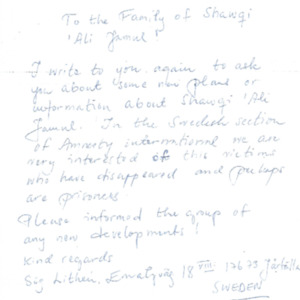 To the Family of Shawqi
'Ali Jamul'
I write to you again to ask
you about some new plans or
information about Shawqi 'Ali
Jamul. In the Swedish section
of Amnesty international we are
very interested of this victims
who have disappeared and perhaps
are prisoners.
Please informed the group of
any new developments!
kind regards
Sig 18 VIII. 17673 Järfälla
SWEDEN